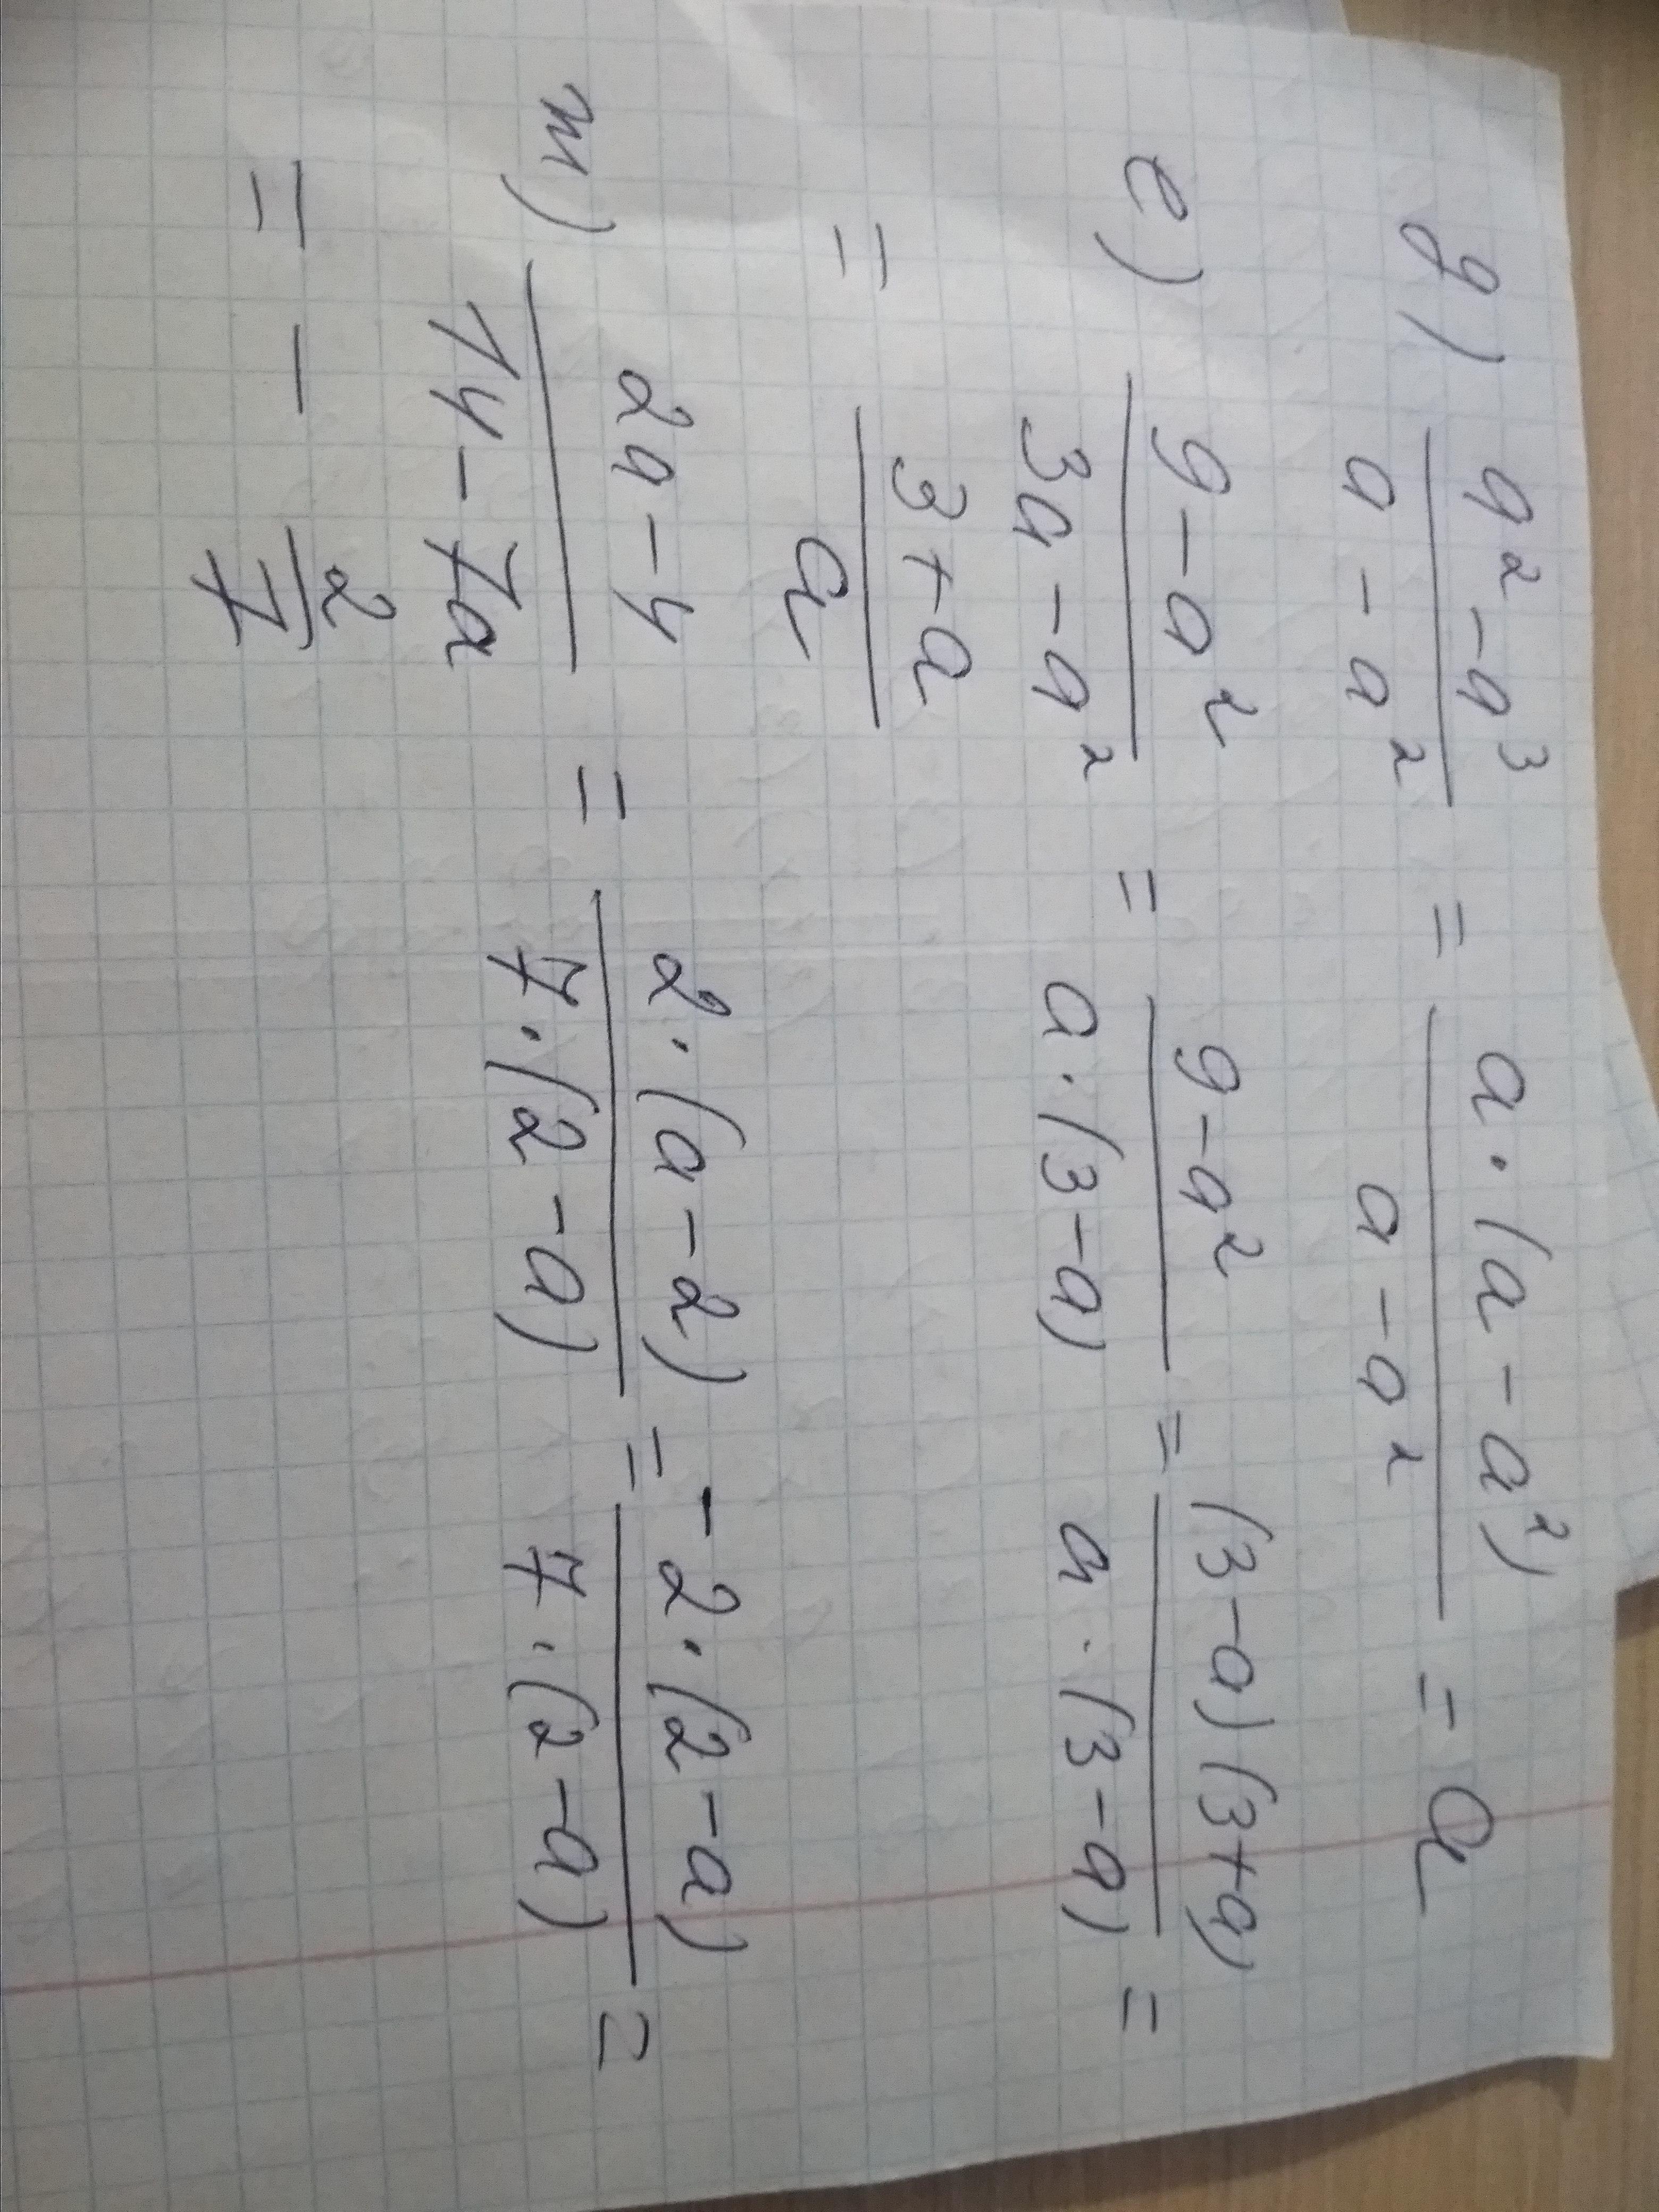 д) (a² - a³)/(a - a²) = (a · (a - a²))/(a - a²) = a
е) (9 - a²)/(3a - a²) = (9 - a²)/(a · (3 - a)) = ((3 - a)(3 + a))/(a · (3 - a)) =
= (3 + a)/a
м) (2a - 4)/(14 - 7a) = (2 · (a - 2))/(7 · (2 - a)) = (-2 · (2 - a))/(7 · (2 - a)) =
= - 2/7